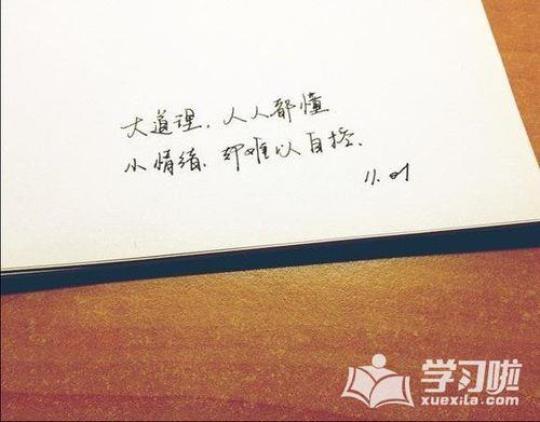 大道理，人人都懂
小情绪，却难以自控，
学习啦
xuexila.com